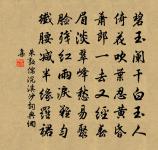 碧玉闌干白玉人
倚花吹葉忍黃昏
蕭郎一去又經春
眉淡翠峰愁易聚
臉殘紅雨淚難勻
纖腰減半緣羅裙
朱敦儒浣溪沙詞典網
集